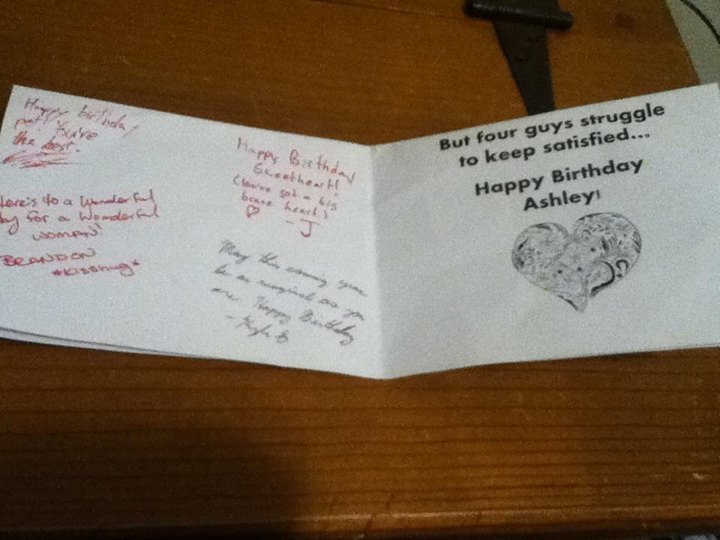 Happy birthday
pet you're
the best.
Here's to a Wonderful
day for a Wonderful
WOMAN!
BRANDON
*Kisshug*
Happy Birthday
Sweetheart!
(You've got a big
brave heart.)
- J
May this coming year
be as magical as you
are. Happy Birthday
But four guys struggle
to keep satisfied...
Happy Birthday
Ashley!